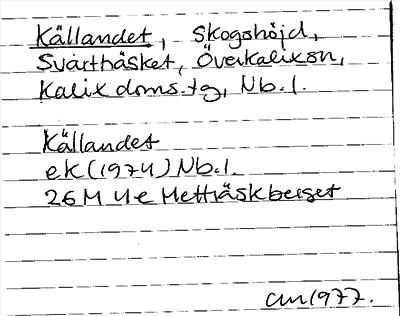 Källandet, Skogshöjd,
Svartbäsket, Överkalix sn,
Kalix doms.tg, Nb.l.
Källandet
ek (1974) Nb.l.
26 M 4e Metträskberget
1977.